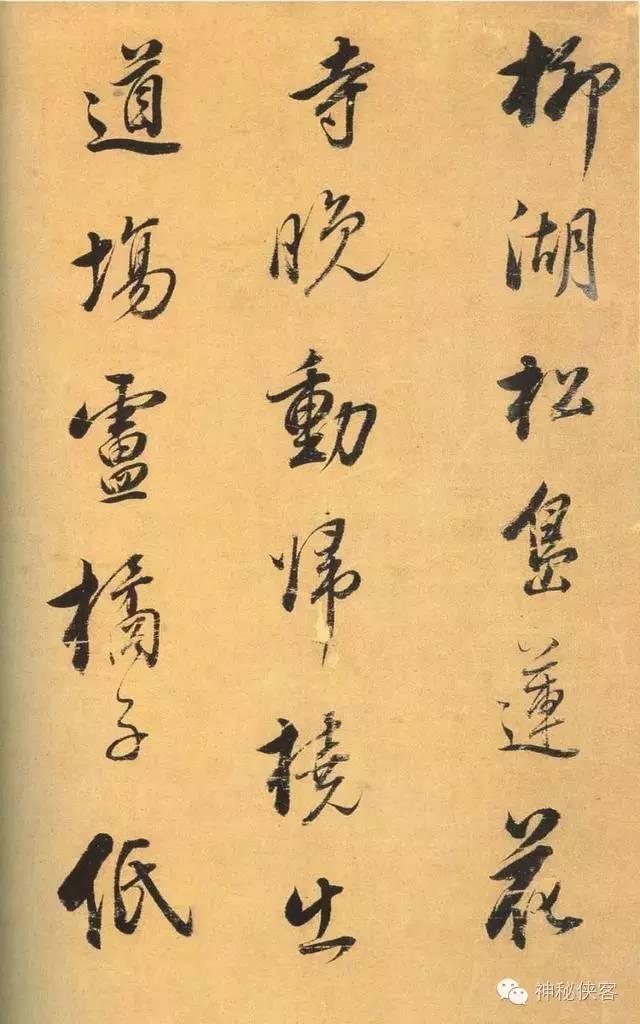 柳湖松島蓮花
寺晚動歸橈出
道場盧橘子低
神秘侠客